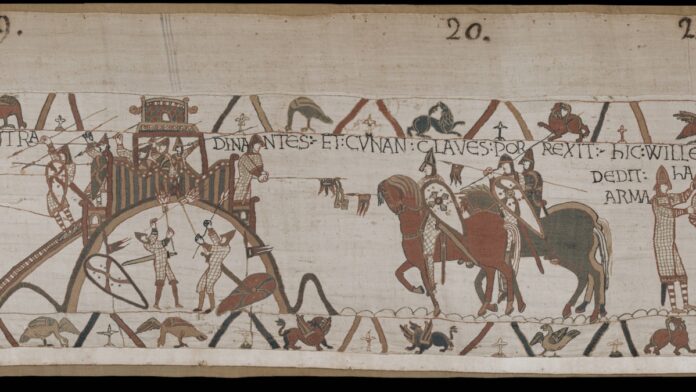 9. 20. 2
TRA DINANTES : ET : CVNAN : CLAVES : POR REXIT : HIC : WILLE
DEDIT : HA
ARMA